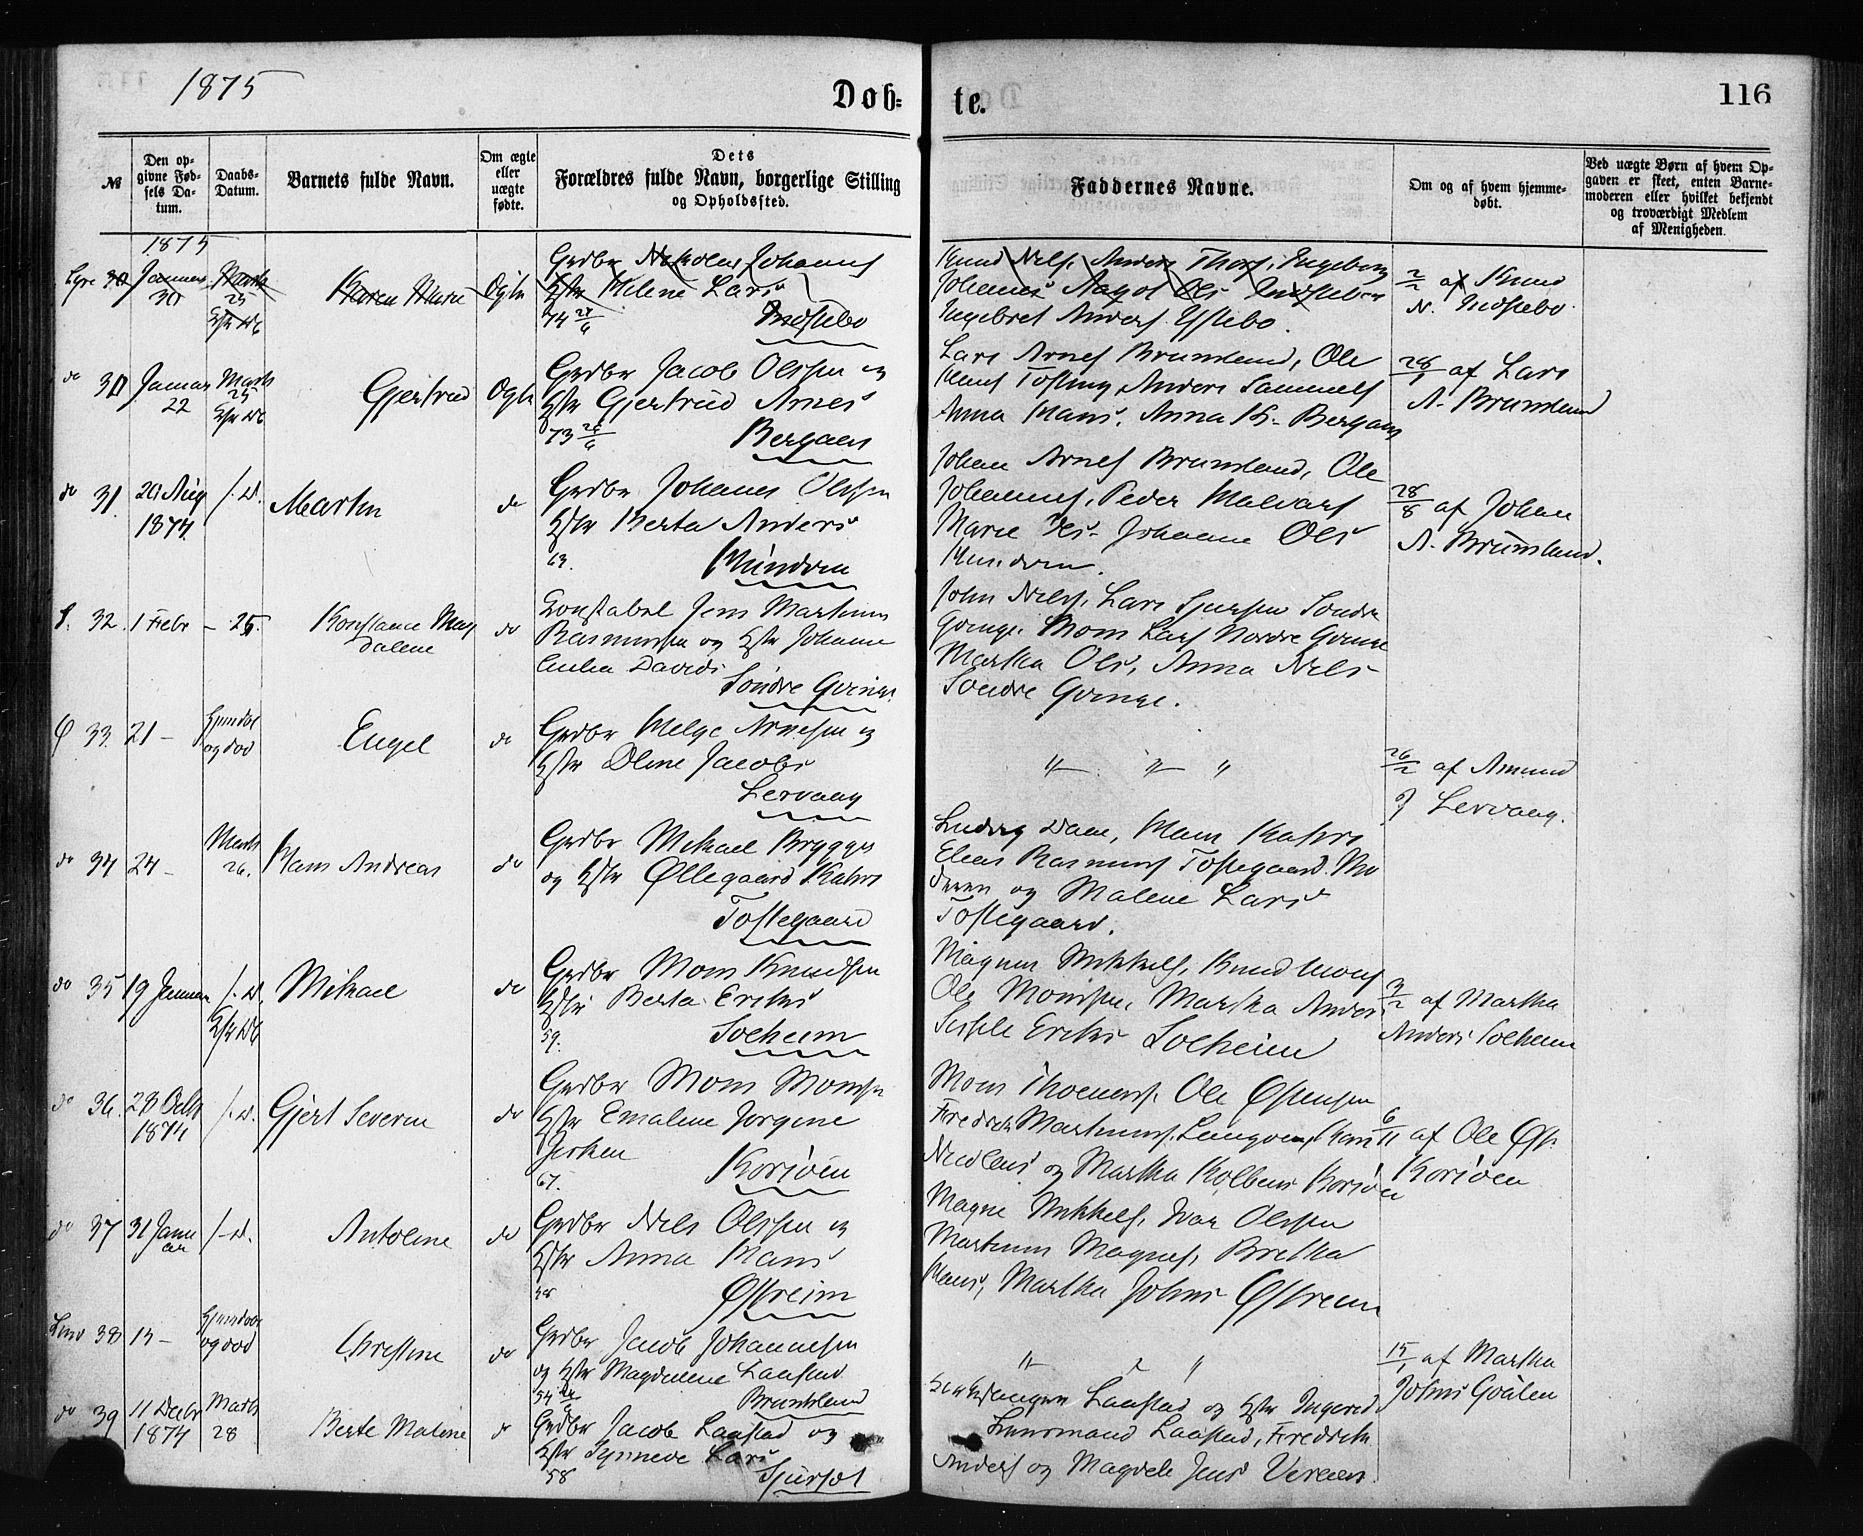 1875
Døb-
te.
116
№
Den op-
givne Fød-
sels Da-
tum.
Daabs-
Datum.
Barnets fulde Navn.
Om ægte
eller
uægte
fødte.
Dets
Forældres fulde Navn, borgerlige Stilling
og Opholdssted.
Faddernes Navne.
Om og af hvem hjemme-
døbt.
Ved uægte Børn af hvem Op-
gaven er skeet, enten Barne-
moderen eller hvilket bekjendt
og troværdigt Medlem
af Menigheden.
1875
30 Januar 30
Marts 25
Karen Marie
Ægte
Grdbr Nikolai Johannes
Hstr Helene Lars
74 28/6 Indstebø
Knud Nels, Anders Thors, Ingeborg
Johannes Aagot Ols Indstebø
Ingebret Anders Ystebø.
2/2 af Knud
N. Indstebø
do 30 Januar 22
Marts 25
Gjertrud
Ægte
Grdbr Jacob Olssen og
Hstr Gjertrud Arnes
73 26/6 Bergaas
Lars Arnes Brunsland, Ole
Anders Samuels
Anna Hans, Anna K. Bergaas
28/1 af Lars
A. Brunsland
do 31. 20 Aug 1874
/. D.
Martin
do
Grdbr Johannes Olssen
Hstr Berta Anders
63.
Johan Arnes Brunsland, Ole
Johannes, Peder
Marie Ols. Johanne Ols
28/8 af Johan
A. Brunsland.
32. 1 Febr
- 25.
Konstance Mag
dalene
do
Konstabel Jens Martinus
Rasmussen og Hstr Johanne
Davids
Søndre Gvinge
John Nels, Lars Sjursen Søndre
Gvinge. Mons Lars Nordre Gvinge
Martha Ols, Anna Nels
Søndre Gvinge.
33. 21 -
Hjemdøbt
og død
Engel
do
Grdbr Helge Arnesen og
Hstr Oline Jacobs
Lervaag
" " "
26/2 af Amund
J Lervaag.
do 34 24 -
Marts 26.
Hans Andreas
do
Grdbr Mikael Brygges
og Hstr Øllegaard Kahrs
Toftegaard
Ludvig Dam, Hans Kahrs
Elias Rasmus Toftegaard. Mo
deren og Malene Lars
Toftegaard.
do 35 19 Januar
/. D.
Mikael
do
Grdbr Mons Knudsen
Hstr Berta Eriks
59. Solheim
Magnus Mikkels, Knud Mons
Ole Monsen, Martha Anders
Eriks Solheim
af Martha
Anders Solheim
do 36. 28 Octbr 1874
/. D.
Gjert Severin
do
Grdbr Mons Monsen
Hstr Emalene Jørgine
67. Korsøen
Mons Thomas. Ole Østensen
Fredrik Martinus
og Martha Kolbens Korsøen
6/11 af Ole Øst.
Korsøen
do 37 31 Janu
ar
/. D.
Antoline
do
Grdbr Nels Olssen og
Hstr Anna Hans
Østreim
Magne Mikkels, Ivar Olssen
Martinus Magnes, Britha
Hans, Martha Johns Østreim
38 15 -
Hjemdøbt
og død
Christine
do
Grdbr Jacob Johannesen
og Hstr Magdalene Laastad
54 Brunsland
" " "
15/1 af Martha
Johns Gvålen
do 39 11 Decbr 1874
Marts 28
Berte Maline
do
Grdbr Jacob Laastad og
Hstr Synneve Lars
58 Sjursæt
Laastad og Hstr Ingerid
Lensmand Laastad, Fredrik
Anders og Magdele Jens Veraas